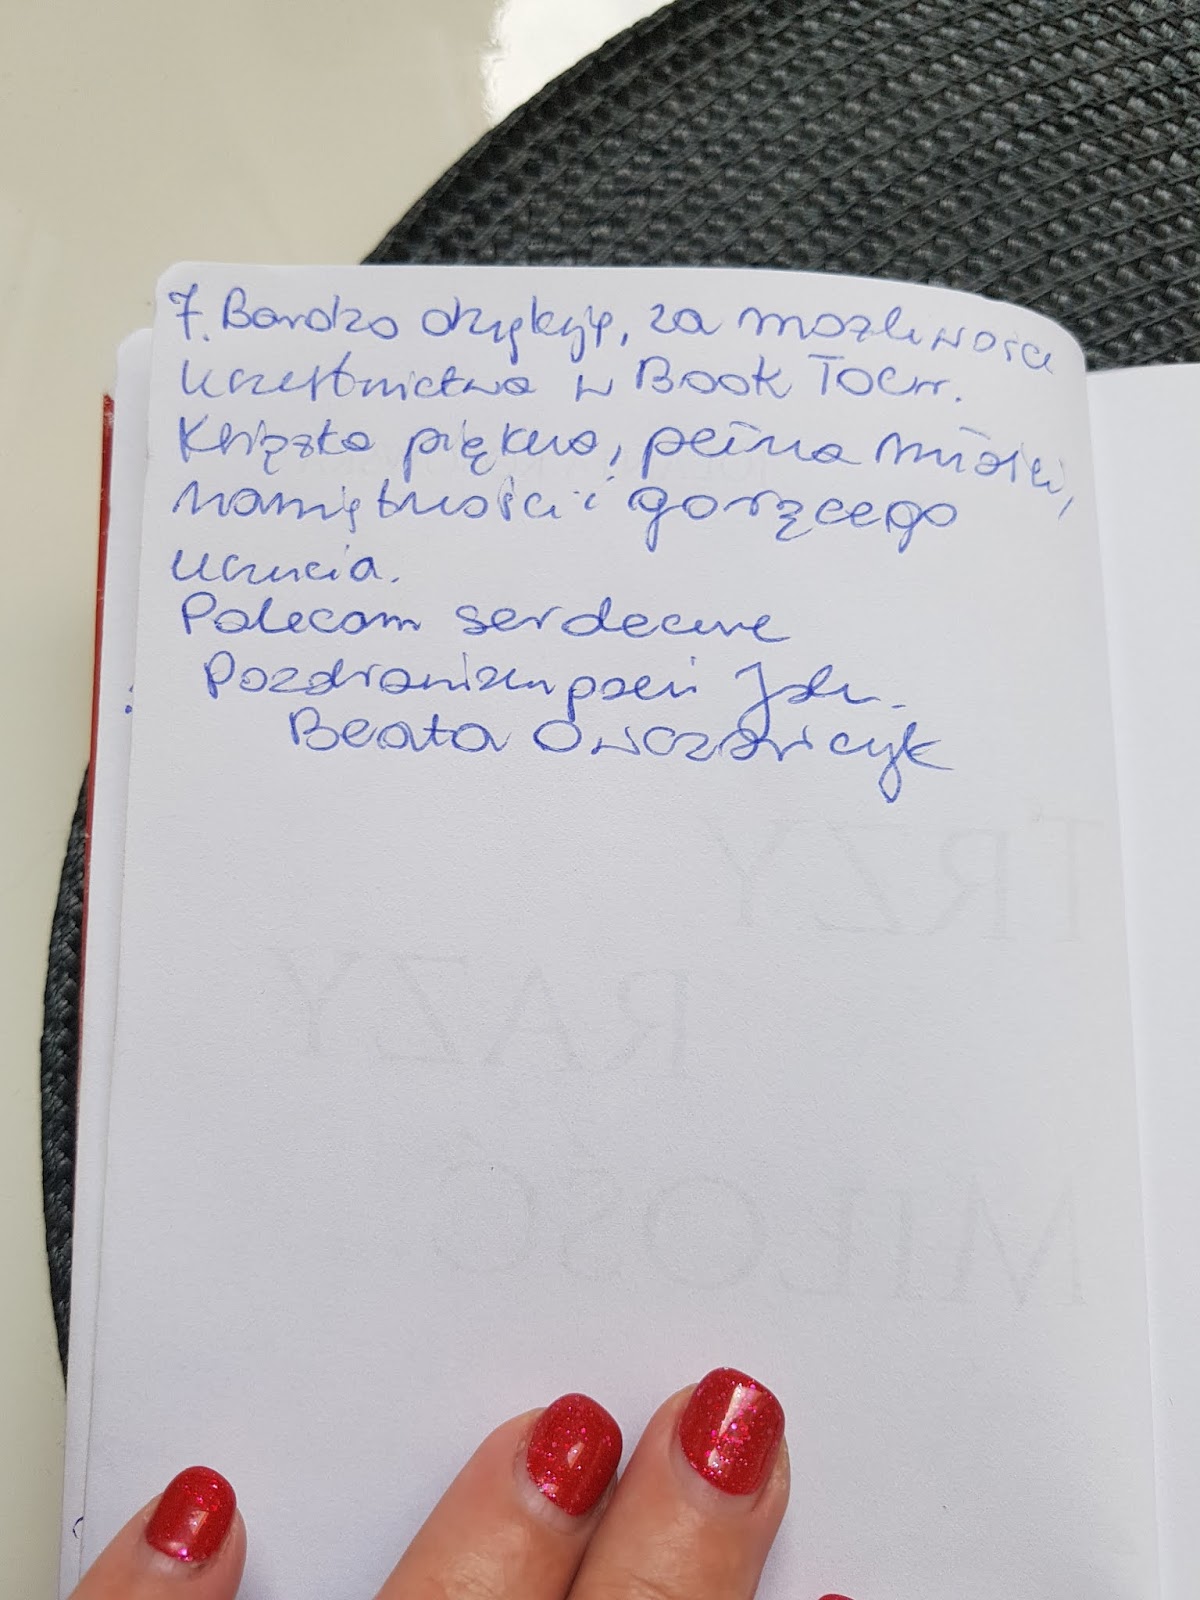 7. Bardzo dziękuję, za możliwość
uczestnictwa w Book Tour.
Książka piękna, pełna miłości,
namiętności i gorącego
uczucia.
Polecam serdecznie
Pozdrawiam pani
Beata Owczarczyk
TRZY
RAZY
MIŁOŚĆ